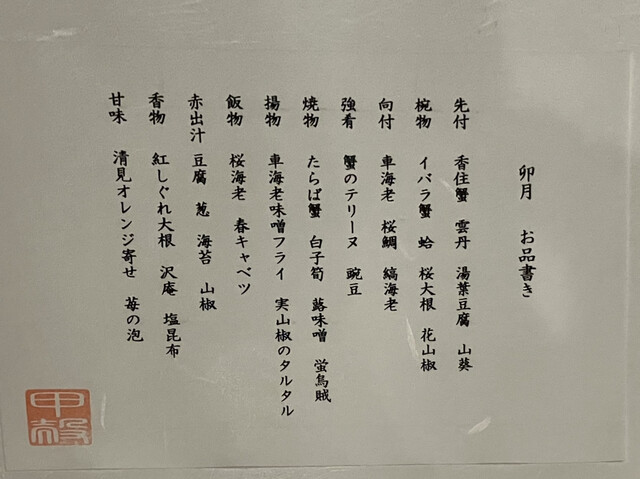 卯月　お品書き
先付　香住蟹　雲丹　湯葉豆腐　山葵
椀物　イバラ蟹　蛤　桜大根　花山椒
向付　車海老　桜鯛　縞海老
強肴　蟹のテリーヌ　豌豆
焼物　たらば蟹　白子筍　蕗味噌　蛍烏賊
揚物　車海老味噌フライ　実山椒のタルタル
飯物　桜海老　春キャベツ
赤出汁　豆腐　葱　海苔　山椒
香物　紅しぐれ大根　沢庵　塩昆布
甘味　清見オレンジ寄せ　苺の泡
甲殻